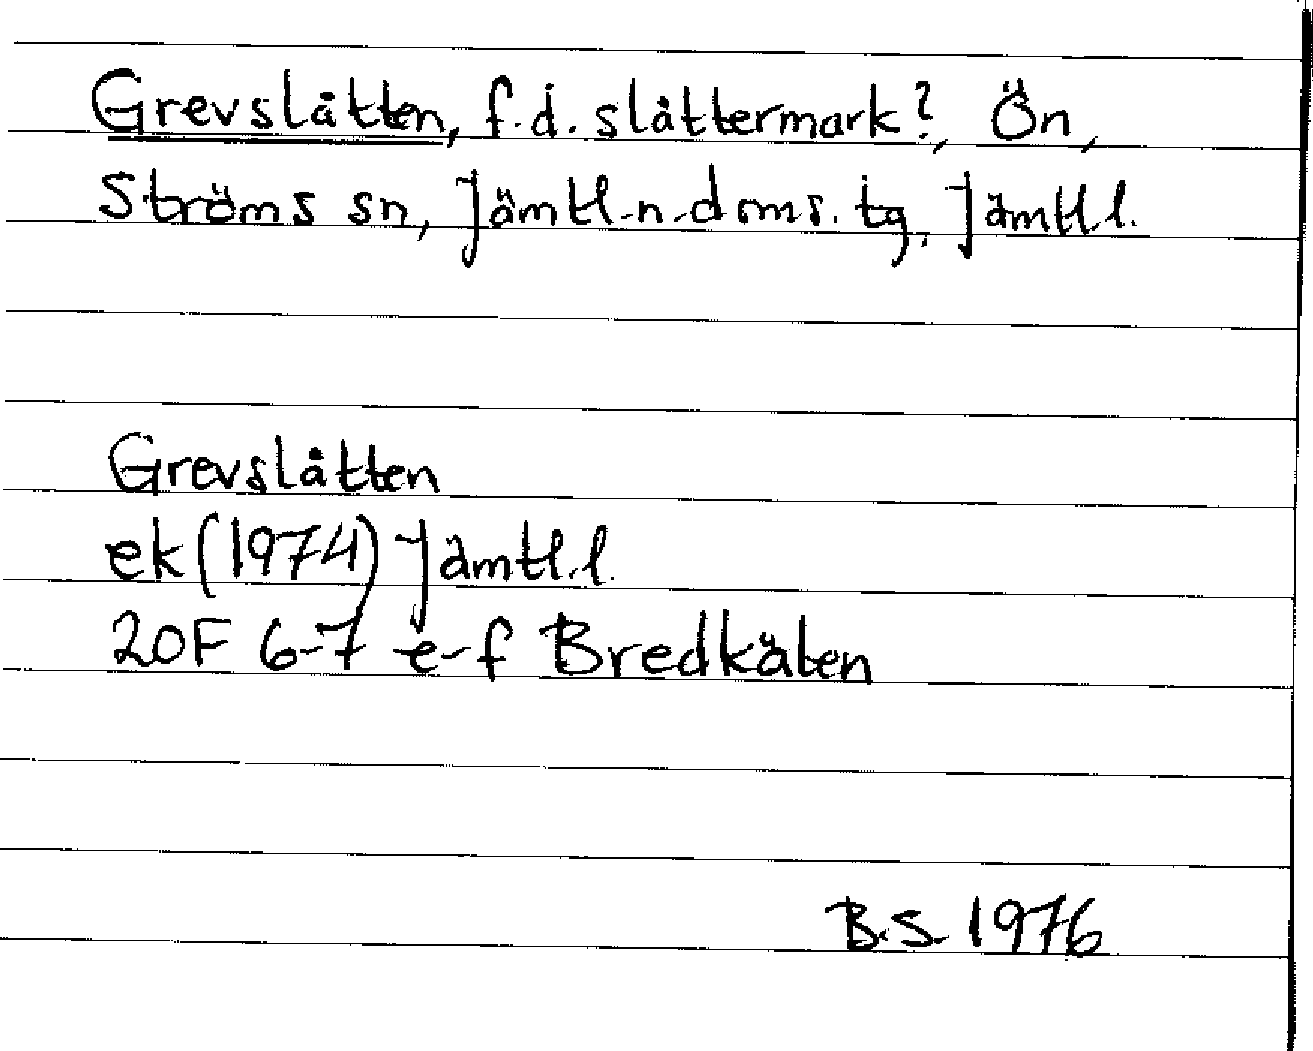 Grevslåtten, f.d. slåttermark?, Ön,
Ströms sn, Jämtl.n.doms.tg, Jämtl.l.
Grevslåtten
ek (1974) Jämtl.l.
20F 6-7 e-f Bredkälen
B.S. 1976